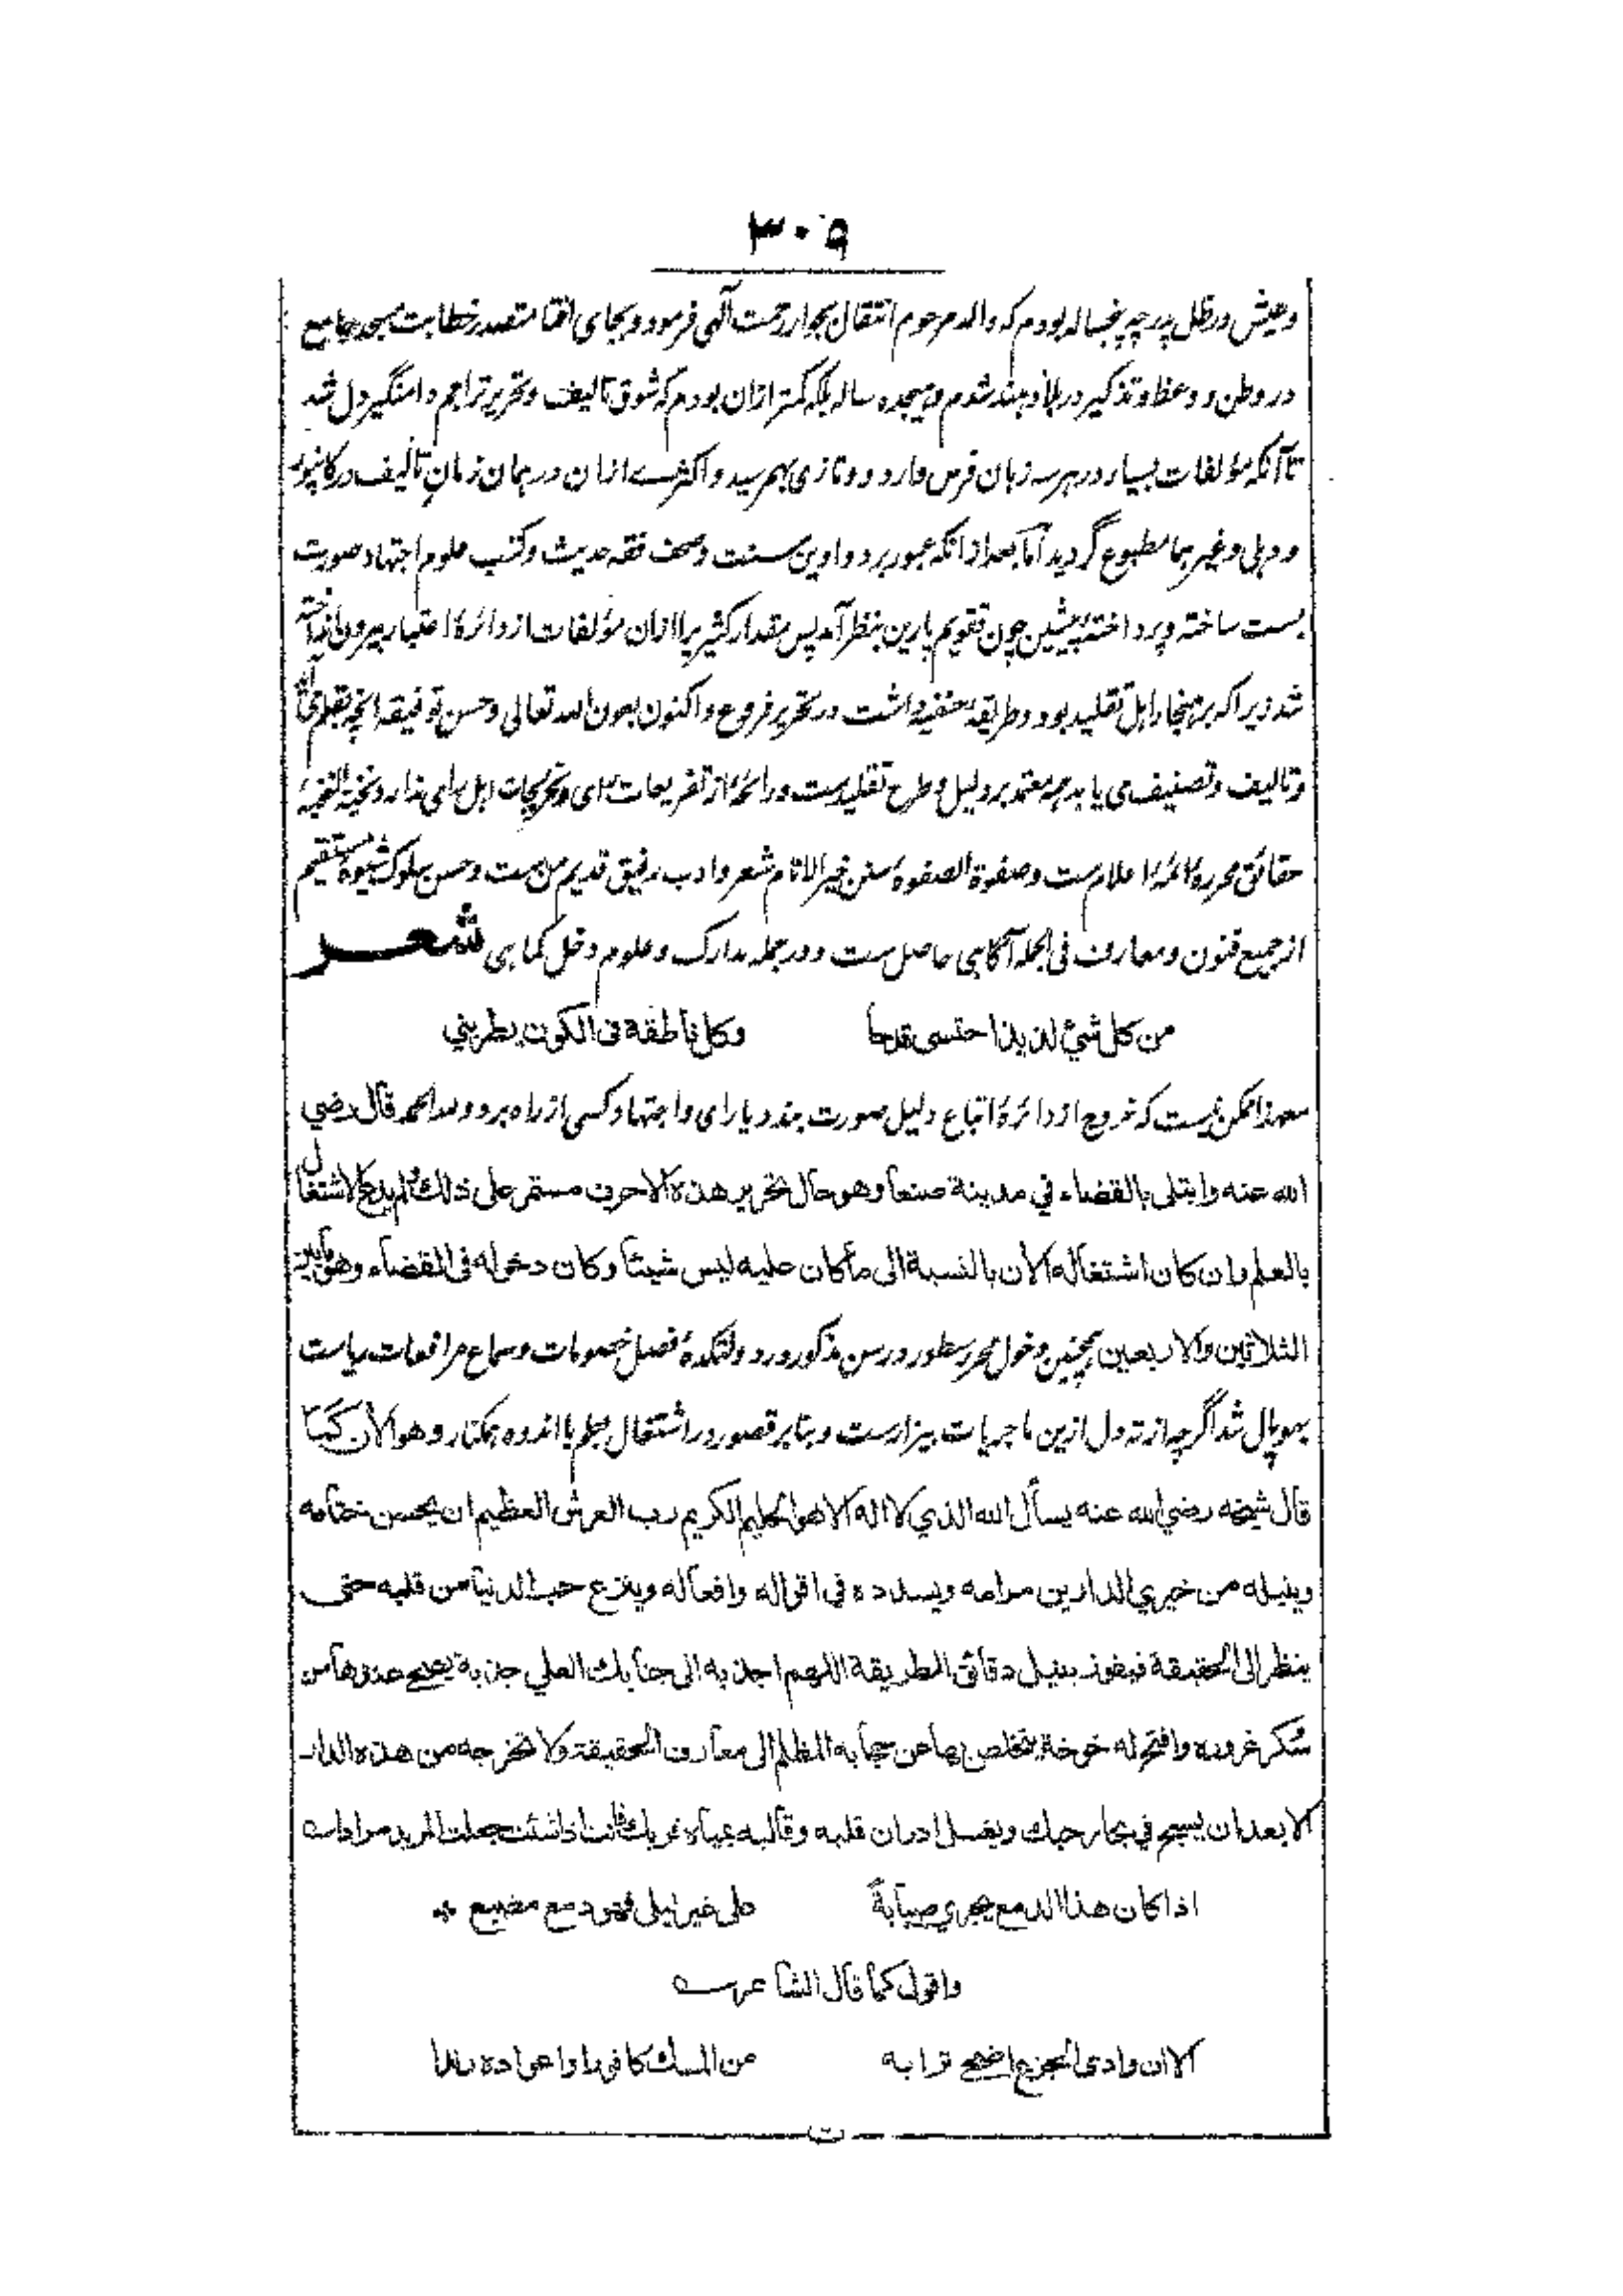 ۳۰۹
وعیش در ظل پدر چه پنجساله بودم که والد مرحوم انتقال بجوار رحمت آلهی فرمود و بجای افتا متصدر خطابت مسجد جامع
در وطن و وعظ و تذکیر در بلاد هند شدم و هیجده ساله بلکه کمتر ازان بودم که شوق تالیف و تحریر تراجم دامنگیر دل شد
تا آنکه مؤلفات بسیار در هر سه زبان فرس و اردو و تازی بهم رسید و اکثرے ازان در همان زمان تألیف در کانپور
و دہلی و غیرہما مطبوع گردید اما بعد از آنکه عبور بر دواوین سنت و صحف فقه حدیث و کتب علوم اجتهاد صورت
بست ساخته و پرداختهٔ پیشین چون تقویم پارین بنظر آمد پس مقدار کثیر را ازان مؤلفات از دائرهٔ اعتبار بیرون انداخته
شد زیرا که بر هنجار اهل تقلید بود و طریقهٔ حنفیه داشت در تحریر فروع و اکنون بعون الله تعالی و حسن توفیقه انچه بقلم
و تالیف و تصنیف می یابد همه معتمد بر دلیل و طرح تقلیدست و رائحهٔ از تفریعات رای و تخریجات اهل رای ندارد و نخبة النخبهٔ
حقائق محررهٔ ائمهٔ اعلامست و صفوة الصفوهٔ سنن خیر الانام شعر و ادب رفیق قدیم من ست و حسن سلوک شیوهٔ مستقیم
از جمیع فنون و معارف فی الجمله آگاهی حاصل ست و در جمله مدارک و علوم دخل کما هی شعر
من كل شيء لذيذ احتسى قدحا وكل ناطقة فى الكون يطربني
معهذا ممکن نیست که خروج از دائرهٔ اتباع دلیل صورت بندد یا رای و اجتهاد کسی از راه برد و لله الحمد قال رضي
الله عنه وابتلى بالقضاء في مدينة صنعا وهو حال تحرير هذه الاحرف مستمر على ذلك ولم يدع الاشتغال
بالعلم وان كان اشتغاله الان بالنسبة الى ما كان عليه ليس شيئا وكان دخوله فى القضاء وهو ما بين
الثلاثين والاربعين همچنین دخول محرر سطور در سن مذکور در دولتکدهٔ فصل خصومات و سماع مرافعات ریاست
بهوپال شد اگرچه از ته دل ازین ماجریات بیزارست و بنا بر قصور در اشتغال بعلم با اندوه همکنار وهو الان كما
قال شيخه رضي الله عنه يسأل الله الذي لا اله الا هو الحليم الكريم رب العرش العظيم ان يحسن ختامه
وينيله من خيري الدارين مرامه ويسدده في اقواله وافعاله وينزع حب الدنيا من قلبه حتى
ينظر الى الحقيقة فيفوز بنيل دقائق الطريقة اللهم اجذبه الى جنابك العلي جذبة يصحح عندها من
سكر غروره وافتح له خوخة يتخلص بها عن حجابه المظلم الى معارف الحقيقة ولا تخرجه من هذه الدار
الا بعد ان يسبح في بحار حبك ويغسل ادران قلبه وقالبه بمياه قربك فانت اذا شئت جعلت المريد مرادا
اذا كان هذا الدمع يجري صبابة على غير ليلى فهو دمع مضيع
واقول كما قال الشاعر
الا ان وادى الجزع اضحى ترابه من المسك كافورا واعواده رندا
ت